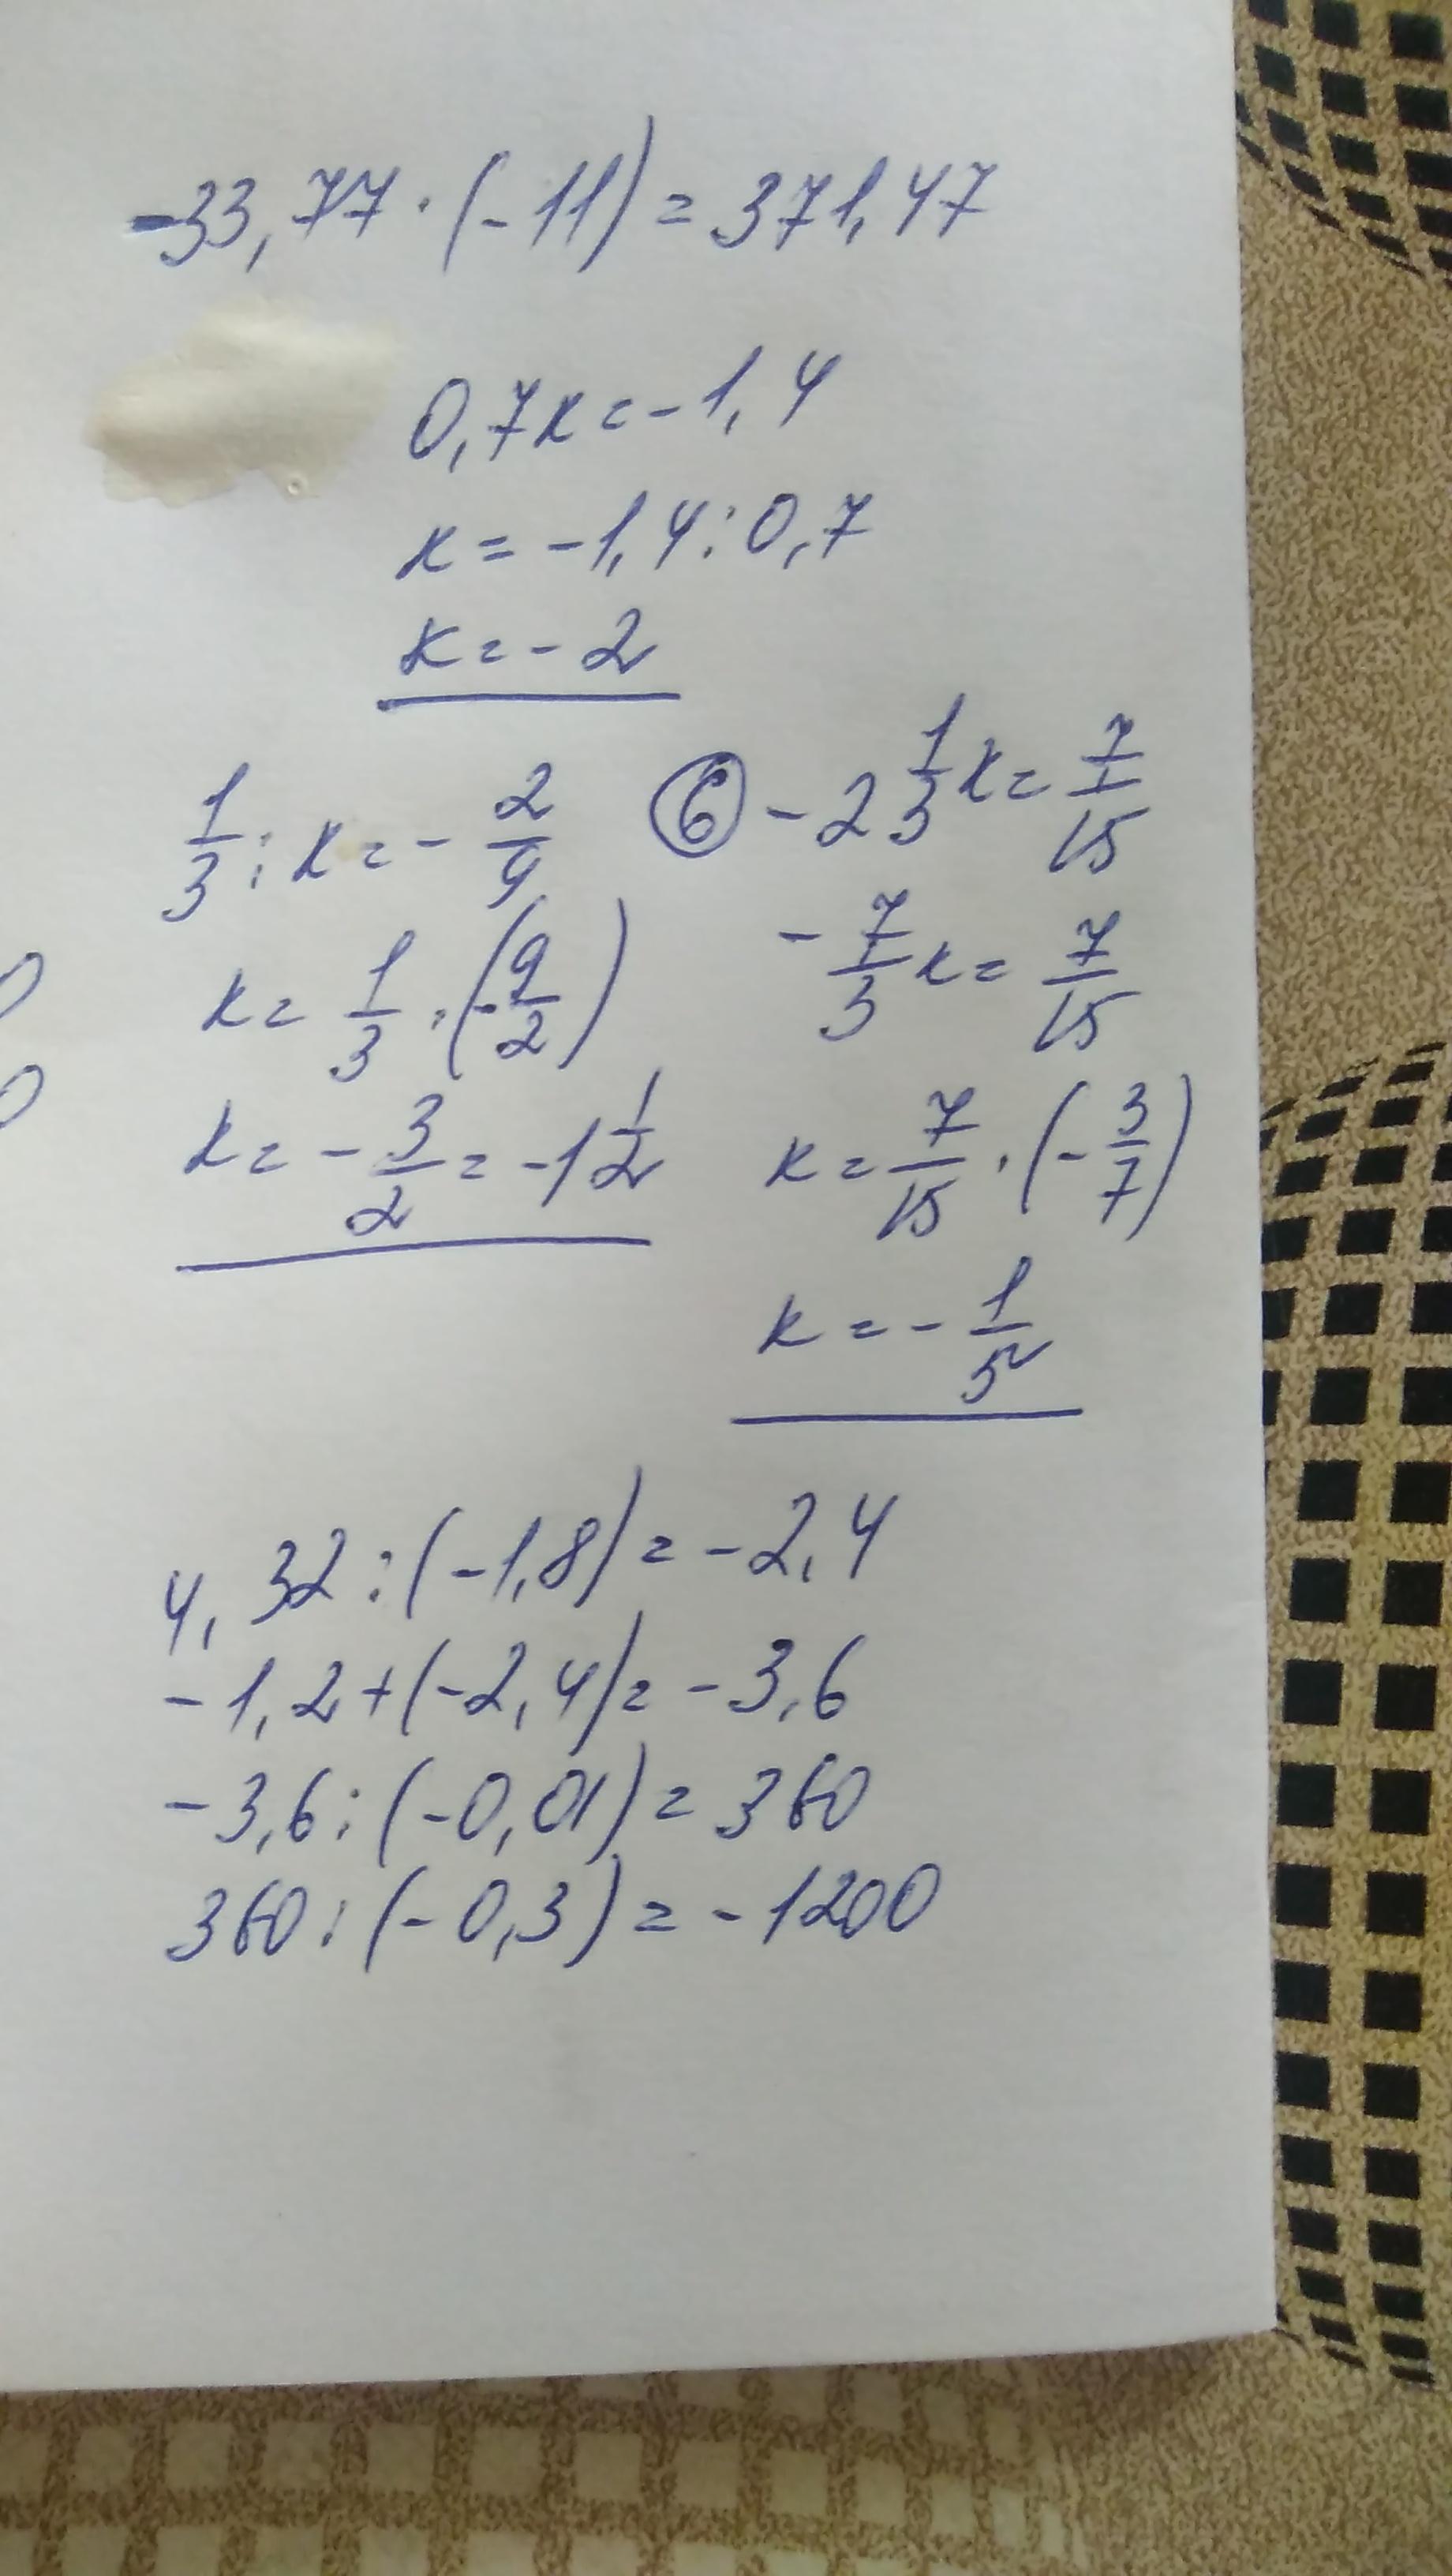 -33,77·(-11)=371,47
0,7x=-1,4
x=-1,4:0,7
x=-2
1/3:x=-2/9
x=1/3·(-9/2)
x=-3/2=-1 1/2
⑥ -2 1/3x=7/15
-7/3x=7/15
x=7/15·(-3/7)
x=-1/5
4,32:(-1,8)=-2,4
-1,2+(-2,4)=-3,6
-3,6:(-0,01)=360
360:(-0,3)=-1200